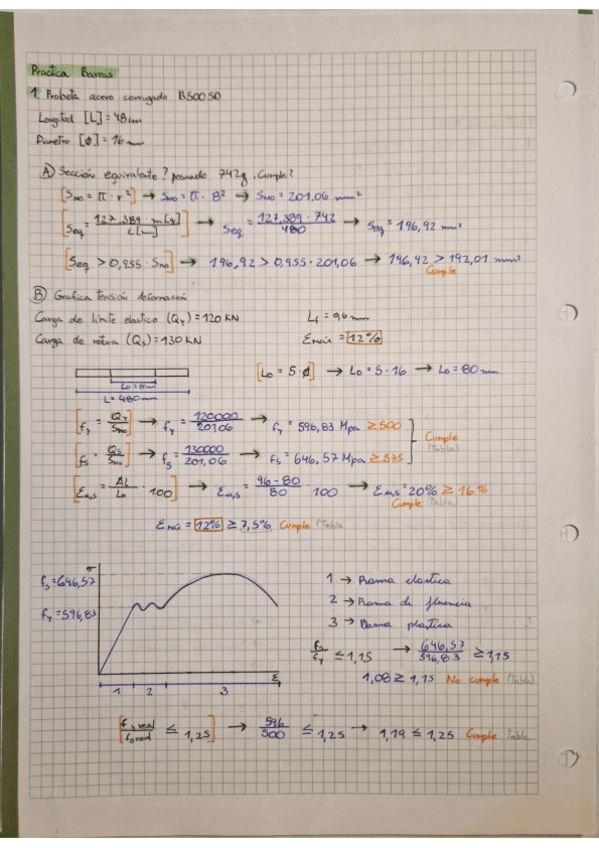 Practica Barras
1. Probeta acero corrugado B500SD
Longitud [L] = 48cm
Diametro [ϕ] = 16mm
A) Sección equivalente? pesando 742g ¿Cumple?
[S_NO = π · r²] → S_NO = π · 8² → S_NO = 201,06 mm²
[Seq = 127,389 · m[g] / L[mm]] → Seq = 127,389 · 742 / 480 → Seq = 196,92 mm²
[Seq > 0,955 · S_NO] → 196,92 > 0,955 · 201,06 → 196,92 > 192,01 mm²
Cumple
B) Grafica tensión deformación
Carga de límite elastico (Qy) = 120 KN Lf = 96 mm
Carga de rotura (Qs) = 130 KN Ɛmáx = 12%
[Lo = 5 · ϕ] → Lo = 5 · 16 → Lo = 80 mm
L = 480mm
[fy = Qy / S_NO] → fy = 120000 / 201,06 → fy = 596,83 Mpa ≥ 500
Cumple (tabla)
[fs = Qs / S_NO] → fs = 130000 / 201,06 → fs = 646,57 Mpa ≥ 575
[Ɛu,s = ΔL / Lo · 100] → Ɛu,s = 96 - 80 / 80 · 100 → Ɛu,s = 20% ≥ 16%
Cumple (tabla)
Ɛmáx = 12% ≥ 7,5% Cumple (tabla)
σ
fs = 646,57
fy = 596,83
Ɛ
1 2 3
1 → Rama elastica
2 → Rama de fluencia
3 → Rama plastica
fs / fy ≤ 1,15 → 646,57 / 596,83 ≥ 1,15
1,08 ≥ 1,15 No cumple (tabla)
[fy real / fy ≤ 1,25] → 596 / 500 ≤ 1,25 → 1,19 ≤ 1,25 Cumple tabla